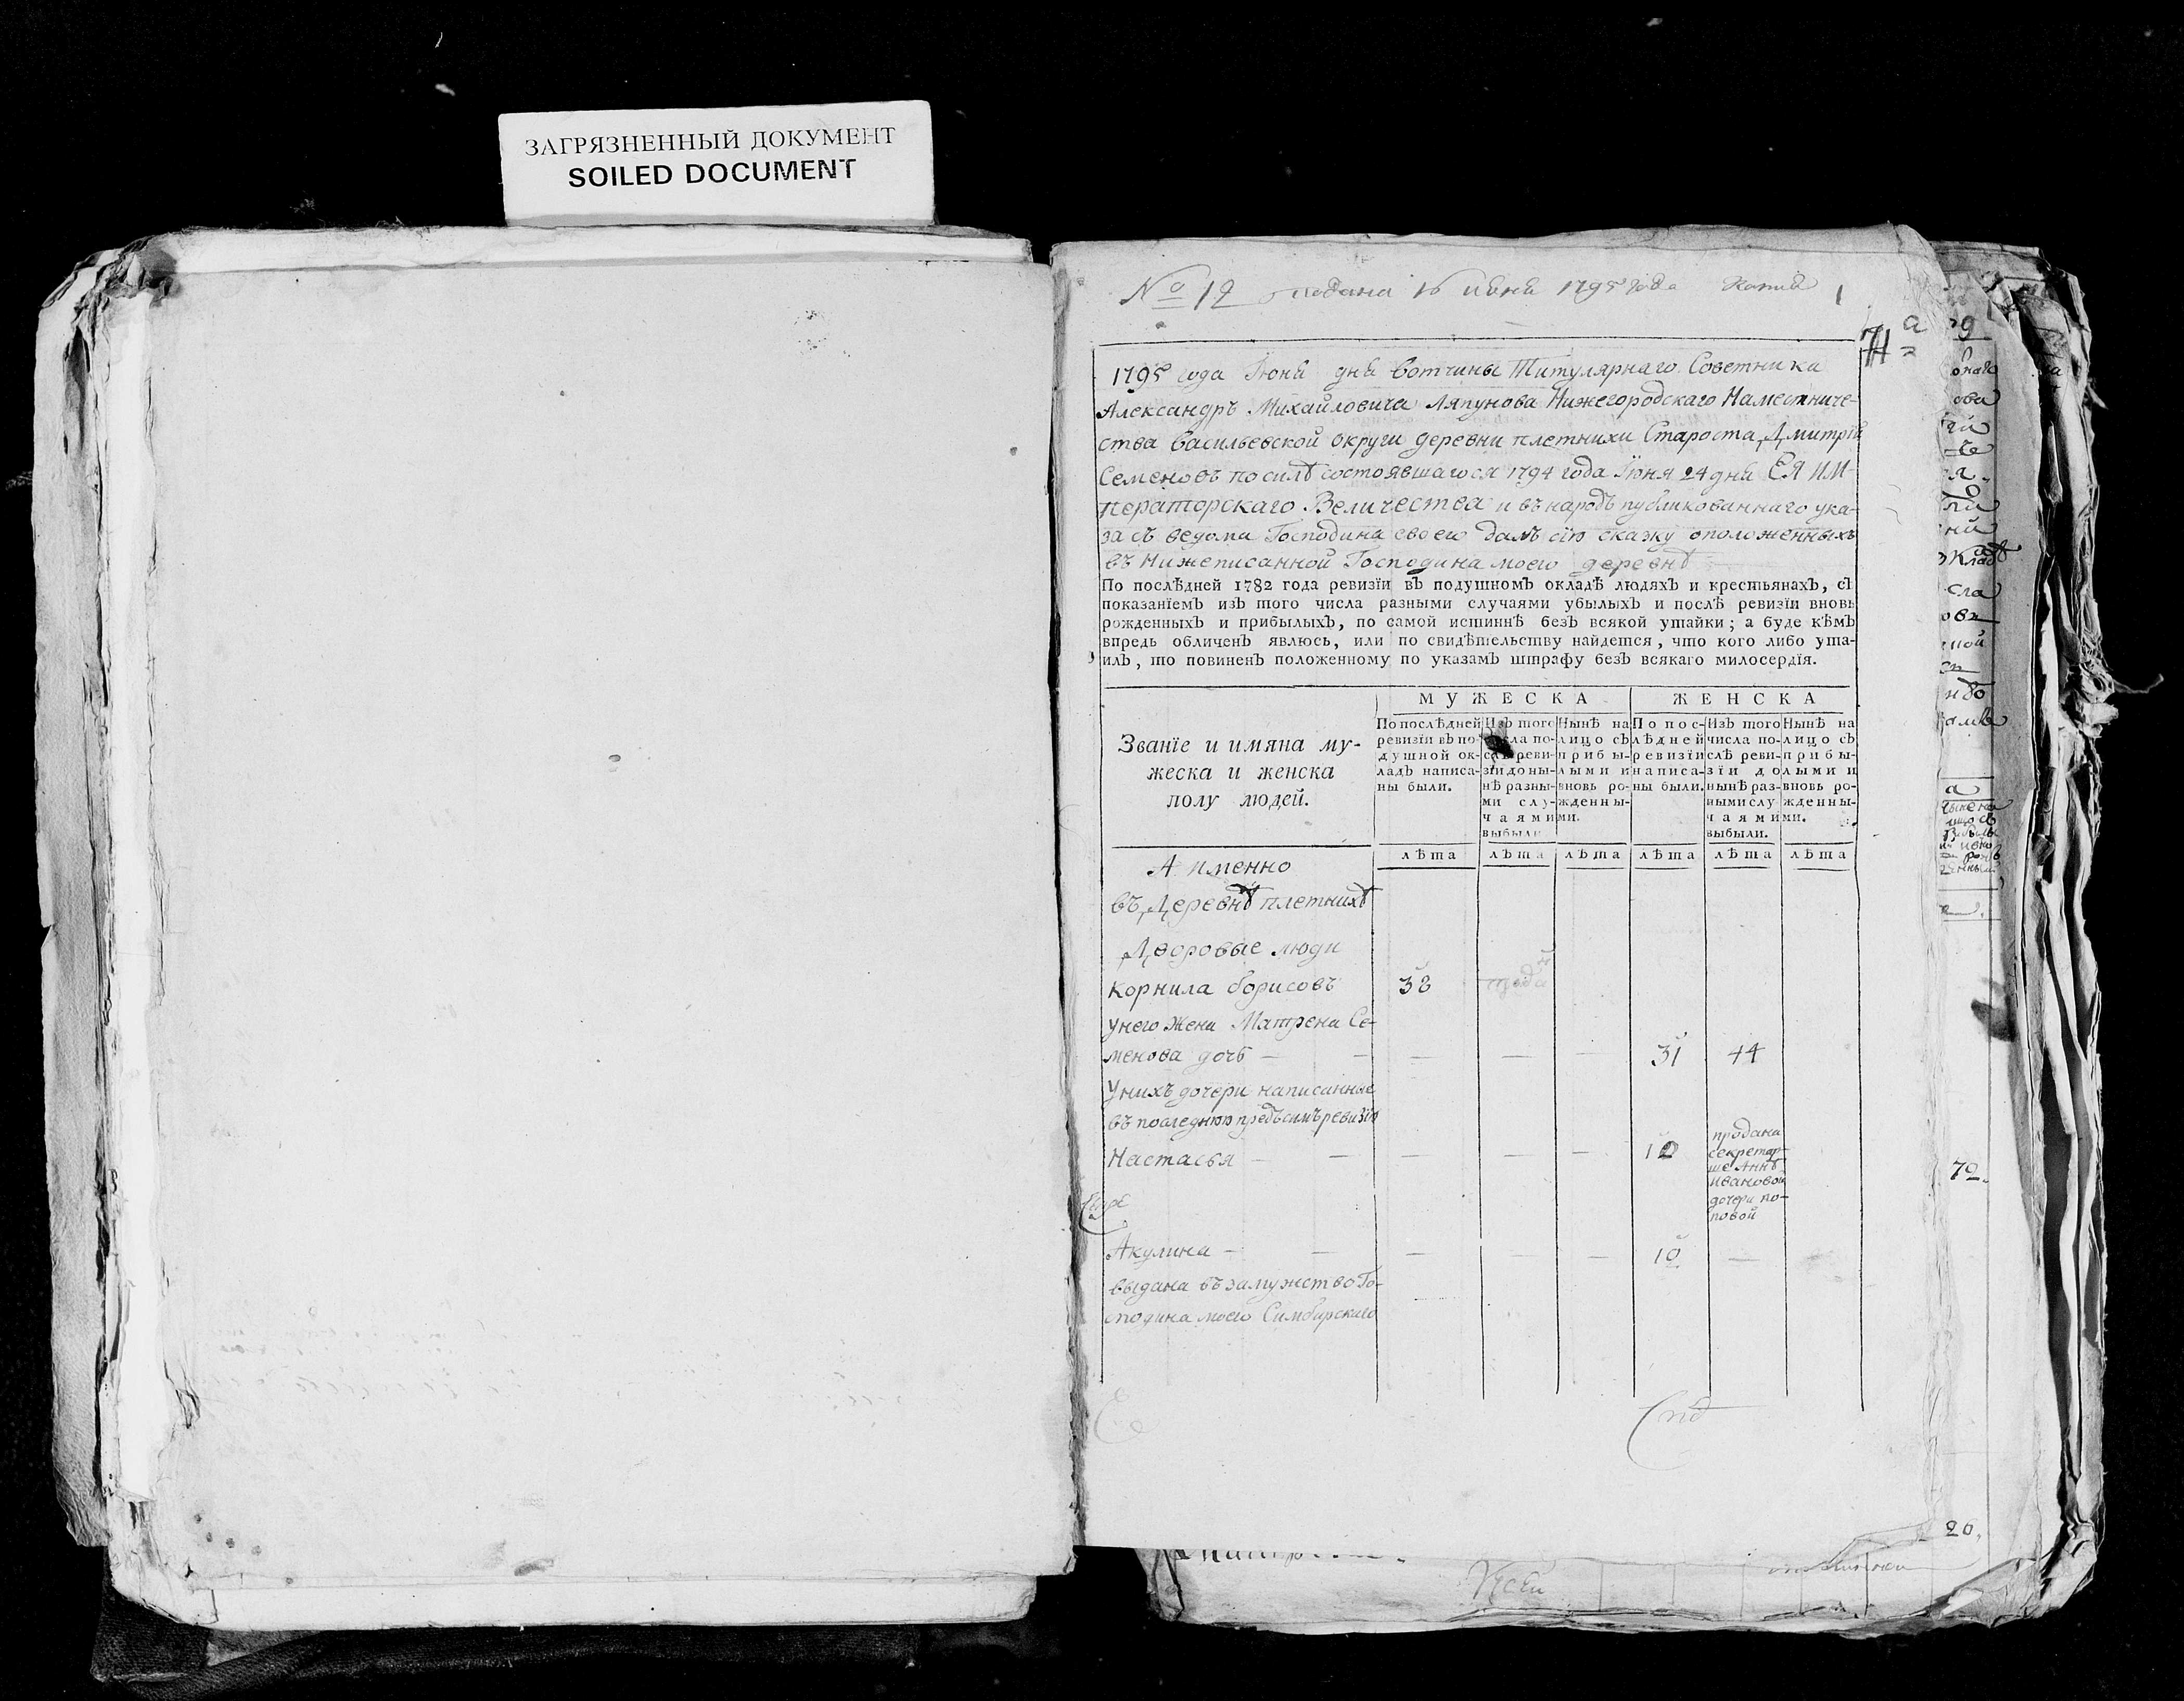 ЗАГРЯЗНЕННЫЙ ДОКУМЕНТ
SOILED DOCUMENT
№ 12 подана 16 июня 1795 года Копия 1
71 а
1795 года Июня дня вотчины Титулярнаго Советника
Александръ Михайловича Ляпунова Нижегородскаго Наместниче-
ства Васильевской округи деревни плетнихи Староста Дмитрїй
Семеновъ по силѣ состоявшагося 1794 года Июня 24 дня ЕЯ ИМ-
ператорскаго Величества и въ народъ публикованнаго ука-
за съ ведома Господина своего далъ сїю сказку о положенныхъ
въ Нижеписанной Господина моего деревнѣ
По послѣдней 1782 года ревизїи въ подушномъ окладѣ людяхъ и крестьянахъ, съ
показанїемъ изъ того числа разными случаями убылыхъ и послѣ ревизїи вновь
рожденныхъ и прибылыхъ, по самой истиннѣ безъ всякой утайки; а буде кѣмъ
впредь обличенъ явлюсь, или по свидѣтельству найдется, что кого либо ута-
илъ, то повиненъ положенному по указамъ штрафу безъ всякаго милосердїя.
МУЖЕСКА
ЖЕНСКА
Званїе и имяна му-
жеска и женска
полу людей.
По послѣдней
ревизїи въ по-
душной ок-
ладъ написа-
ны были.
Изъ того
числа по-
слѣ реви-
зїи до ны-
нѣ разны-
ми слу-
чаями
выбыли
Нынѣ на
лицо съ
прибы-
лыми и
вновь ро-
жденны-
ми.
По пос-
лѣдней
ревизїи
написа-
ны были.
Изъ того
числа по-
слѣ реви-
зїи до
нынѣ раз-
ными слу
чаями
выбыли.
Нынѣ на
лицо съ
прибы-
лыми и
вновь ро-
жденны-
ми.
лѣта лѣта лѣта лѣта лѣта лѣта
А именно
въ Деревнѣ плетнихѣ
Дворовые люди
Корнила борисовъ 38
У него Жена Матрена Се-
менова дочь — — — — — 31 44
У нихъ дочери написанные
въ последнюю предъ симъ ревизїю
Настасья — — — — — 12
продана
секретар-
ше Аннѣ
Ивановой
дочери по-
повой
Акулина — — — — — 10 —
выдана въ замужство Го-
сподина моего Симбирскаго
72.
20.